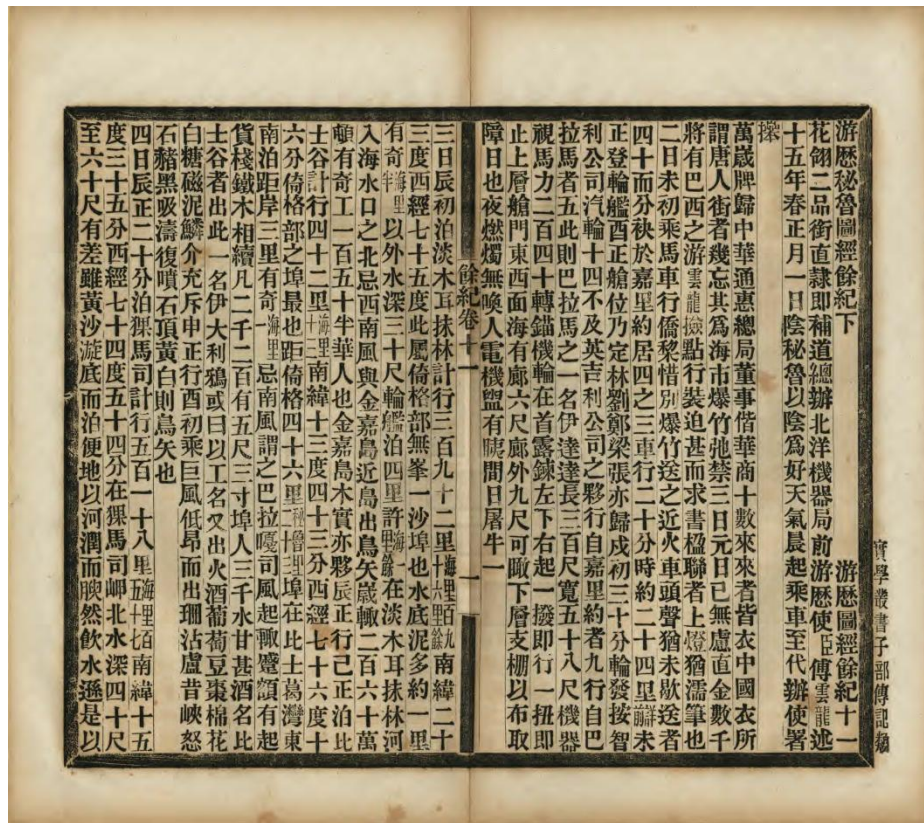 游歷秘魯圖經餘紀下　游歷圖經餘紀十一
花翎二品銜直隸即補道總辦北洋機器局前游歷使臣傅雲龍述
十五年春正月一日陰秘魯以陰爲好天氣晨起乘車至代辦使署
萬歲牌歸中華通惠總局董事偕華商十數來來者皆衣中國衣所
謂唐人街者幾忘其爲海市爆竹弛禁三日元日已無慮直金數千
將有巴西之游雲龍撿點行裝迫甚而求書楹聯者上燈猶濡筆也
二日未初乘馬車行僑黎惜別爆竹送之近火車頭聲猶未歇送者
四十而分袂於嘉里約居四之三車行二十分時約二十四里辭未
正登輪艦酉正艙位乃定林劉鄭梁張亦歸戌初三十分輪發按智
利公司汽輪十四不及英吉利公司之夥行自嘉里約者九行自巴
拉馬者五此則巴拉馬之一名伊達達長三百尺寬五十八尺機器
視馬力二百四十轉錨機輪在首露鍊左下右起一撥即行一扭即
止上層艙門東西面海有廊六尺廊外九尺可瞰下層支棚以布取
障日也夜燃燭無喚人電機盥有胰間日屠牛一
餘紀卷十一　一
三日辰初泊淡木耳抹林計行三百九十二里海里百九十六里餘南緯二十
三度西經七十五度此屬倚格部無峯一沙埠也水底泥多約一里
有奇海里半以外水深三十尺輪艦泊四里許海一在淡木耳抹林河
入海水口之北忌西南風與金嘉島近島出鳥矢歲輙二百六十萬
頓有奇工一百五十半華人也金嘉島木實亦夥辰正行已正泊比
士谷計行四十二里海里二十南緯十三度四十三分西經七十六度十
六分倚格部之埠最也距倚格四十六里秘魯里二十三埠在比士葛灣東
南泊距岸三里有奇海里一忌南風謂之巴拉嘎司風起輙蹙額有起
貨棧鐵木相續凡二千二百有五尺三寸埠人三千水甘甚酒名比
士谷者出此一名伊大利鴉或曰以工名又出火酒葡萄豆棗棉花
白糖磁泥鱗介充斥申正行酉初乘巨風低昂而出珊沾盧昔峽怒
石赭黑吸濤復噴石頂黃白則鳥矢也
四日辰正二十分泊猓馬司計行五百一十八里海里二百五十九南緯十五
度三十五分西經七十四度五十四分在猓馬司岬北水深四十尺
至六十尺有差雖黃沙漩底而泊便地以河潤而腴然飲水遜是以
實學叢書子部傳記類